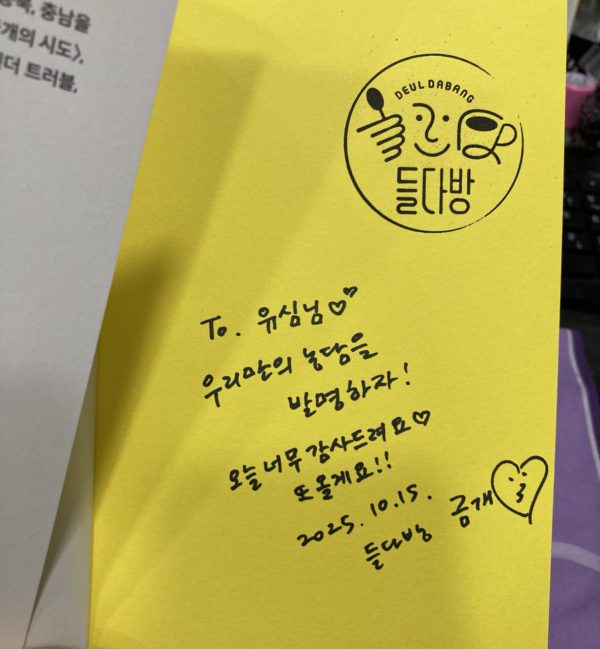 충남을
개의 시도>,
더 트러블,
DEUL DABANG
들다방
To. 유심님♡♡
우리만의 농담을
발명하자!
오늘 너무 감사드려요♡
또 올게요!!
2025. 10. 15.
들다방 금개